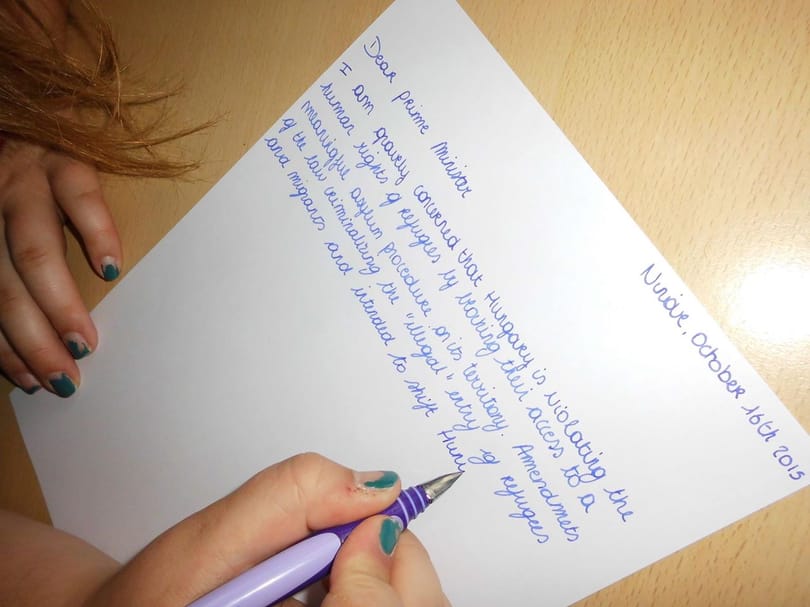 October 16th 2015
Dear Prime Minister
I am gravely concerned that Hungary is violating the
human rights of refugees by blocking their access to a
meaningful asylum procedure on its territory. Amendmets
of the law criminalizing the "illegal" entry of refugees
and migrans and intended to shift Hun